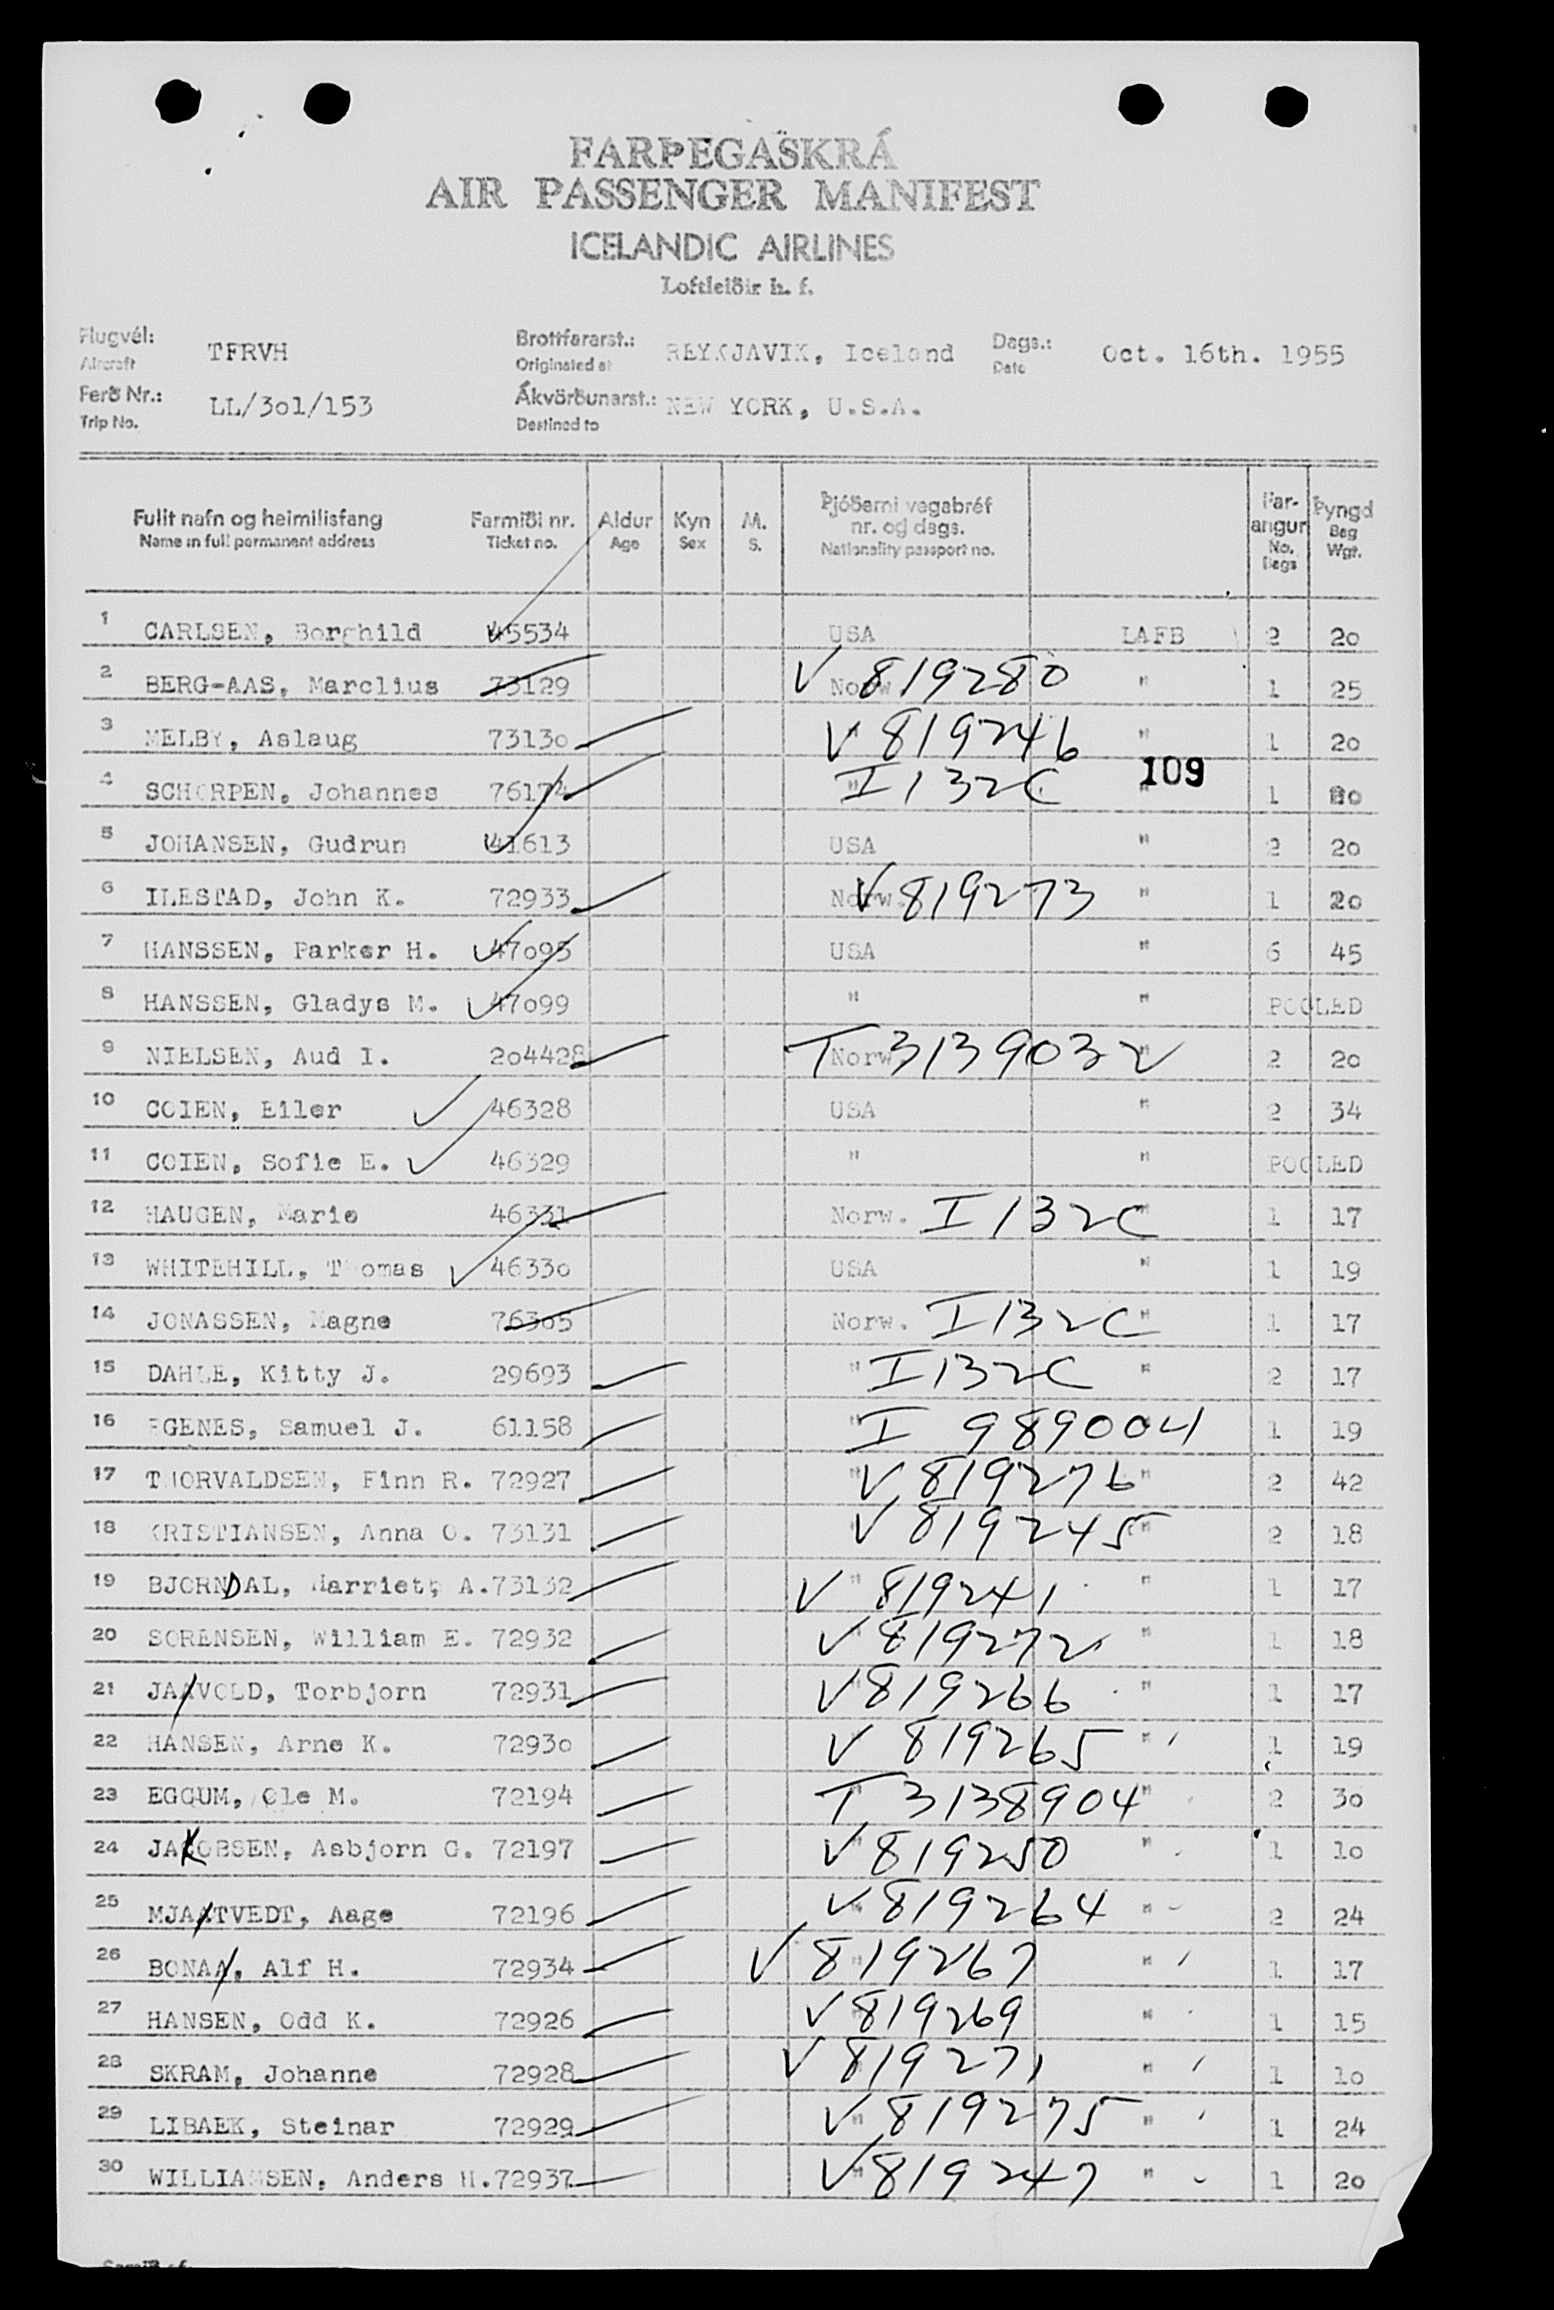 FARÞEGASKRÁ
AIR PASSENGER MANIFEST
ICELANDIC AIRLINES
Loftleiðir h. f.
Flugvél: TFRVH Brottfararst.: REYKJAVIK, Iceland Dags.: Oct. 16th. 1955
Aircraft Originated at Date
Ferð Nr.: LL/3o1/153 Ákvörðunarst.: NEW YORK, U.S.A.
Trip No. Destined to
Fullt nafn og heimilisfang Farmiði nr. Aldur Kyn M. Þjóðerni vegabréf nr. og dags. Far-angur Þyngd
Name in full permanent address Ticket no. Age Sex S. Nationality passport no. No. Bags Bag Wgt.
1 CARLSEN, Borghild 45534 USA LAFB 2 2o
2 BERG-AAS, Marclius 73129 Norw V 819280 " 1 25
3 MELBY, Aslaug 7313o " V 819246 " 1 2o
4 SCHORPEN, Johannes 76174 " I 132C 109 " 1 2o
5 JOHANSEN, Gudrun 41613 USA " 2 2o
6 ILESTAD, John K. 72933 Norw. V 819273 " 1 2o
7 HANSSEN, Parker H. 47o95 USA " 6 45
8 HANSSEN, Gladys M. 47o99 " " POOLED
9 NIELSEN, Aud I. 2o4428 Norw. T 3139032 " 2 2o
10 COIEN, Eiler 46328 USA " 2 34
11 COIEN, Sofie E. 46329 " " POOLED
12 HAUGEN, Marie 46331 Norw. I 132C " 1 17
13 WHITEHILL, Thomas 4633o USA " 1 19
14 JONASSEN, Magne 763o5 Norw. I 132C " 1 17
15 DAHLE, Kitty J. 29693 " I 132C " 2 17
16 EGENES, Samuel J. 61158 " I 989004 1 19
17 THORVALDSEN, Finn R. 72927 " V 819276 " 2 42
18 KRISTIANSEN, Anna O. 73131 " V 819245 " 2 18
19 BJORNDAL, Harriett A. 73132 " V 819241 " 1 17
20 SORENSEN, William E. 72932 " V 819272 " 1 18
21 JAAVOLD, Torbjorn 72931 " V 819266 " 1 17
22 HANSEN, Arne K. 7293o V 819265 " 1 19
23 EGGUM, Ole M. 72194 " T 3138904 " 2 3o
24 JAKOBSEN, Asbjorn G. 72197 " V 819250 " 1 1o
25 MJAATVEDT, Aage 72196 " V 819264 " 2 24
26 BONAA, Alf H. 72934 " V 819267 " 1 17
27 HANSEN, Odd K. 72926 " V 819269 " 1 15
28 SKRAM, Johanne 72928 " V 819271 " 1 1o
29 LIBAEK, Steinar 72929 " V 819275 " 1 24
30 WILLIAMSEN, Anders H. 72937 " V 819247 " 1 2o